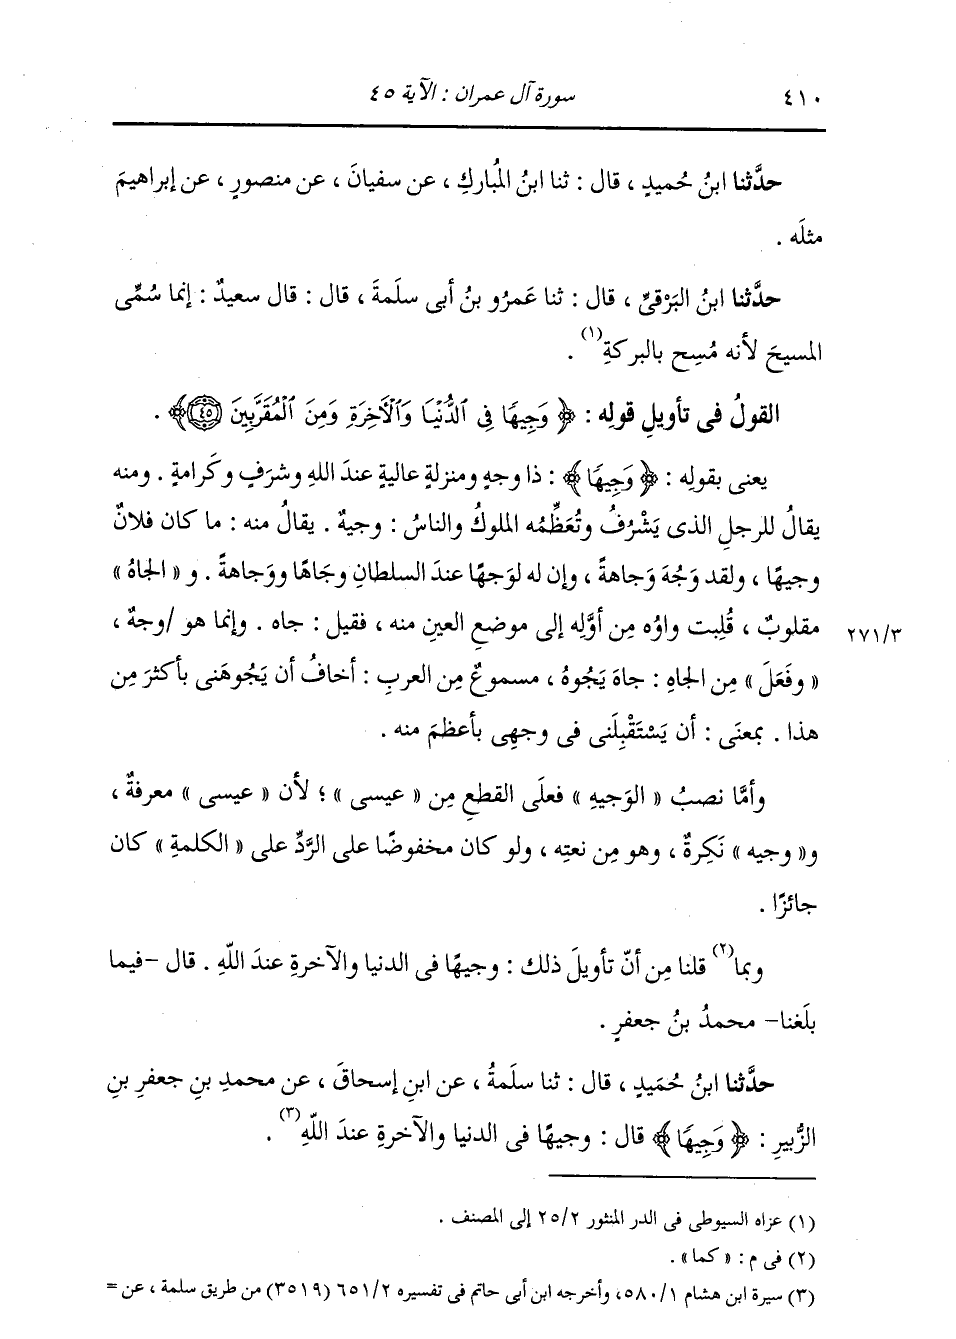 ٤١٠ سورة آل عمران : الآية ٤٥
حدَّثنا ابنُ حُميدٍ ، قال : ثنا ابنُ المُباركِ ، عن سفيانَ ، عن منصورٍ ، عن إبراهيمَ
مثلَه .
حدَّثنا ابنُ البَرْقىِّ ، قال : ثنا عَمرُو بنُ أبى سلَمةَ ، قال : قال سعيدٌ : إنما سُمِّى
المسيحَ لأنه مُسِح بالبركةِ(١) .
القولُ فى تأويلِ قولِه : ﴿ وَجِيهًا فِى الدُّنْيَا وَالْآخِرَةِ وَمِنَ الْمُقَرَّبِينَ ۝٤٥ ﴾ .
يعنى بقولِه : ﴿ وَجِيهًا ﴾ : ذا وجهٍ ومنزلةٍ عاليةٍ عندَ اللهِ وشرَفٍ وكَرامةٍ . ومنه
يقالُ للرجلِ الذى يَشْرُفُ وتُعَظِّمُه الملوكُ والناسُ : وجيهٌ . يقالُ منه : ما كان فلانٌ
وجيهًا ، ولقد وَجُهَ وَجاهةً ، وإن له لوَجهًا عندَ السلطانِ وجَاهًا ووَجاهةً . و « الجاهُ »
مقلوبٌ ، قُلِبت واوُه مِن أوَّلِه إلى موضعِ العينِ منه ، فقيل : جاه . وإنما هو /وجهٌ ، ٢٧١/٣
« وفَعَلَ » مِن الجاهِ : جاهَ يَجُوهُ ، مسموعٌ مِن العربِ : أخافُ أن يَجُوهَنى بأكثرَ مِن
هذا . بمعنَى : أن يَسْتَقْبِلَنى فى وجهِى بأعظمَ منه .
وأمَّا نصبُ « الوَجيهِ » فعلَى القطعِ مِن « عيسى » ؛ لأن « عيسى » معرفةٌ ،
و« وجيه » نَكِرةٌ ، وهو مِن نعتِه ، ولو كان مخفوضًا على الرَّدِّ على « الكلمةِ » كان
جائزًا .
وبما(٢) قلنا مِن أنّ تأويلَ ذلك : وجيهًا فى الدنيا والآخرةِ عندَ اللّهِ . قال -فيما
بلَغنا- محمدُ بنُ جعفرٍ .
حدَّثنا ابنُ حُمَيدٍ ، قال : ثنا سلَمةُ ، عن ابنِ إسحاقَ ، عن محمدِ بنِ جعفرِ بنِ
الزُّبيرِ : ﴿ وَجِيهًا ﴾ قال : وجيهًا فى الدنيا والآخرةِ عندَ اللّهِ(٣) .
(١) عزاه السيوطى فى الدر المنثور ٢٥/٢ إلى المصنف .
(٢) فى م : « كما » .
(٣) سيرة ابن هشام ٥٨٠/١، وأخرجه ابن أبى حاتم فى تفسيره ٦٥١/٢ (٣٥١٩) من طريق سلمة ، عن =